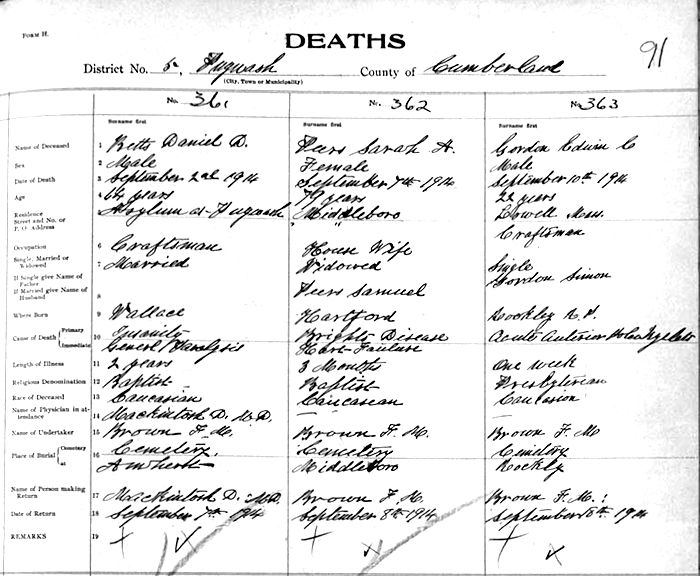 FORM H.
DEATHS
91
District No. 5, Pugwash County of Cumberland
(City, Town or Municipality)
No. 361 No. 362 No. 363
Surname first Surname first Surname first
Name of Deceased 1 Betts Daniel D. Peers Sarah A. Gordon Edwin C
Sex 2 Male Female Male
Date of Death 3 September 2nd 1914 September 7th 1914 September 10th 1914
Age 4 64 years 79 years 22 years
Residence Street and No. or P. O. Address 5 Asylum at Pugwash Middleboro Lowell Mass.
Occupation 6 Craftsman House Wife Craftsman
Single, Married or Widowed 7 Married Widowed Single
If Single give Name of Father Gordon Simon
If Married give Name of Husband 8 Peers Samuel
Where Born 9 Wallace Hartford Rockley N.S.
Cause of Death Primary 10 Insanity Brights Disease Acute Anterior
Immediate Generl Paralysis Hart Failure
Length of Illness 11 2 years 3 Months One week
Religious Denomination 12 Baptist Baptist Presbyterian
Race of Deceased 13 Caucasian Caucasean Caucasion
Name of Physician in attendance 14 Mackintosh D. M.D. — —
Name of Undertaker 15 Brown F. M. Brown F. M. Brown F. M
Place of Burial Cemetery 16 Cemetery. Cemetery Cemetery
at Amherst Middleboro Rockly
Name of Person making Return 17 Mackintosh D. M.D. Brown F. M. Brown F. M.
Date of Return 18 September 7th 1914 September 8th 1914 September 1914
REMARKS 19